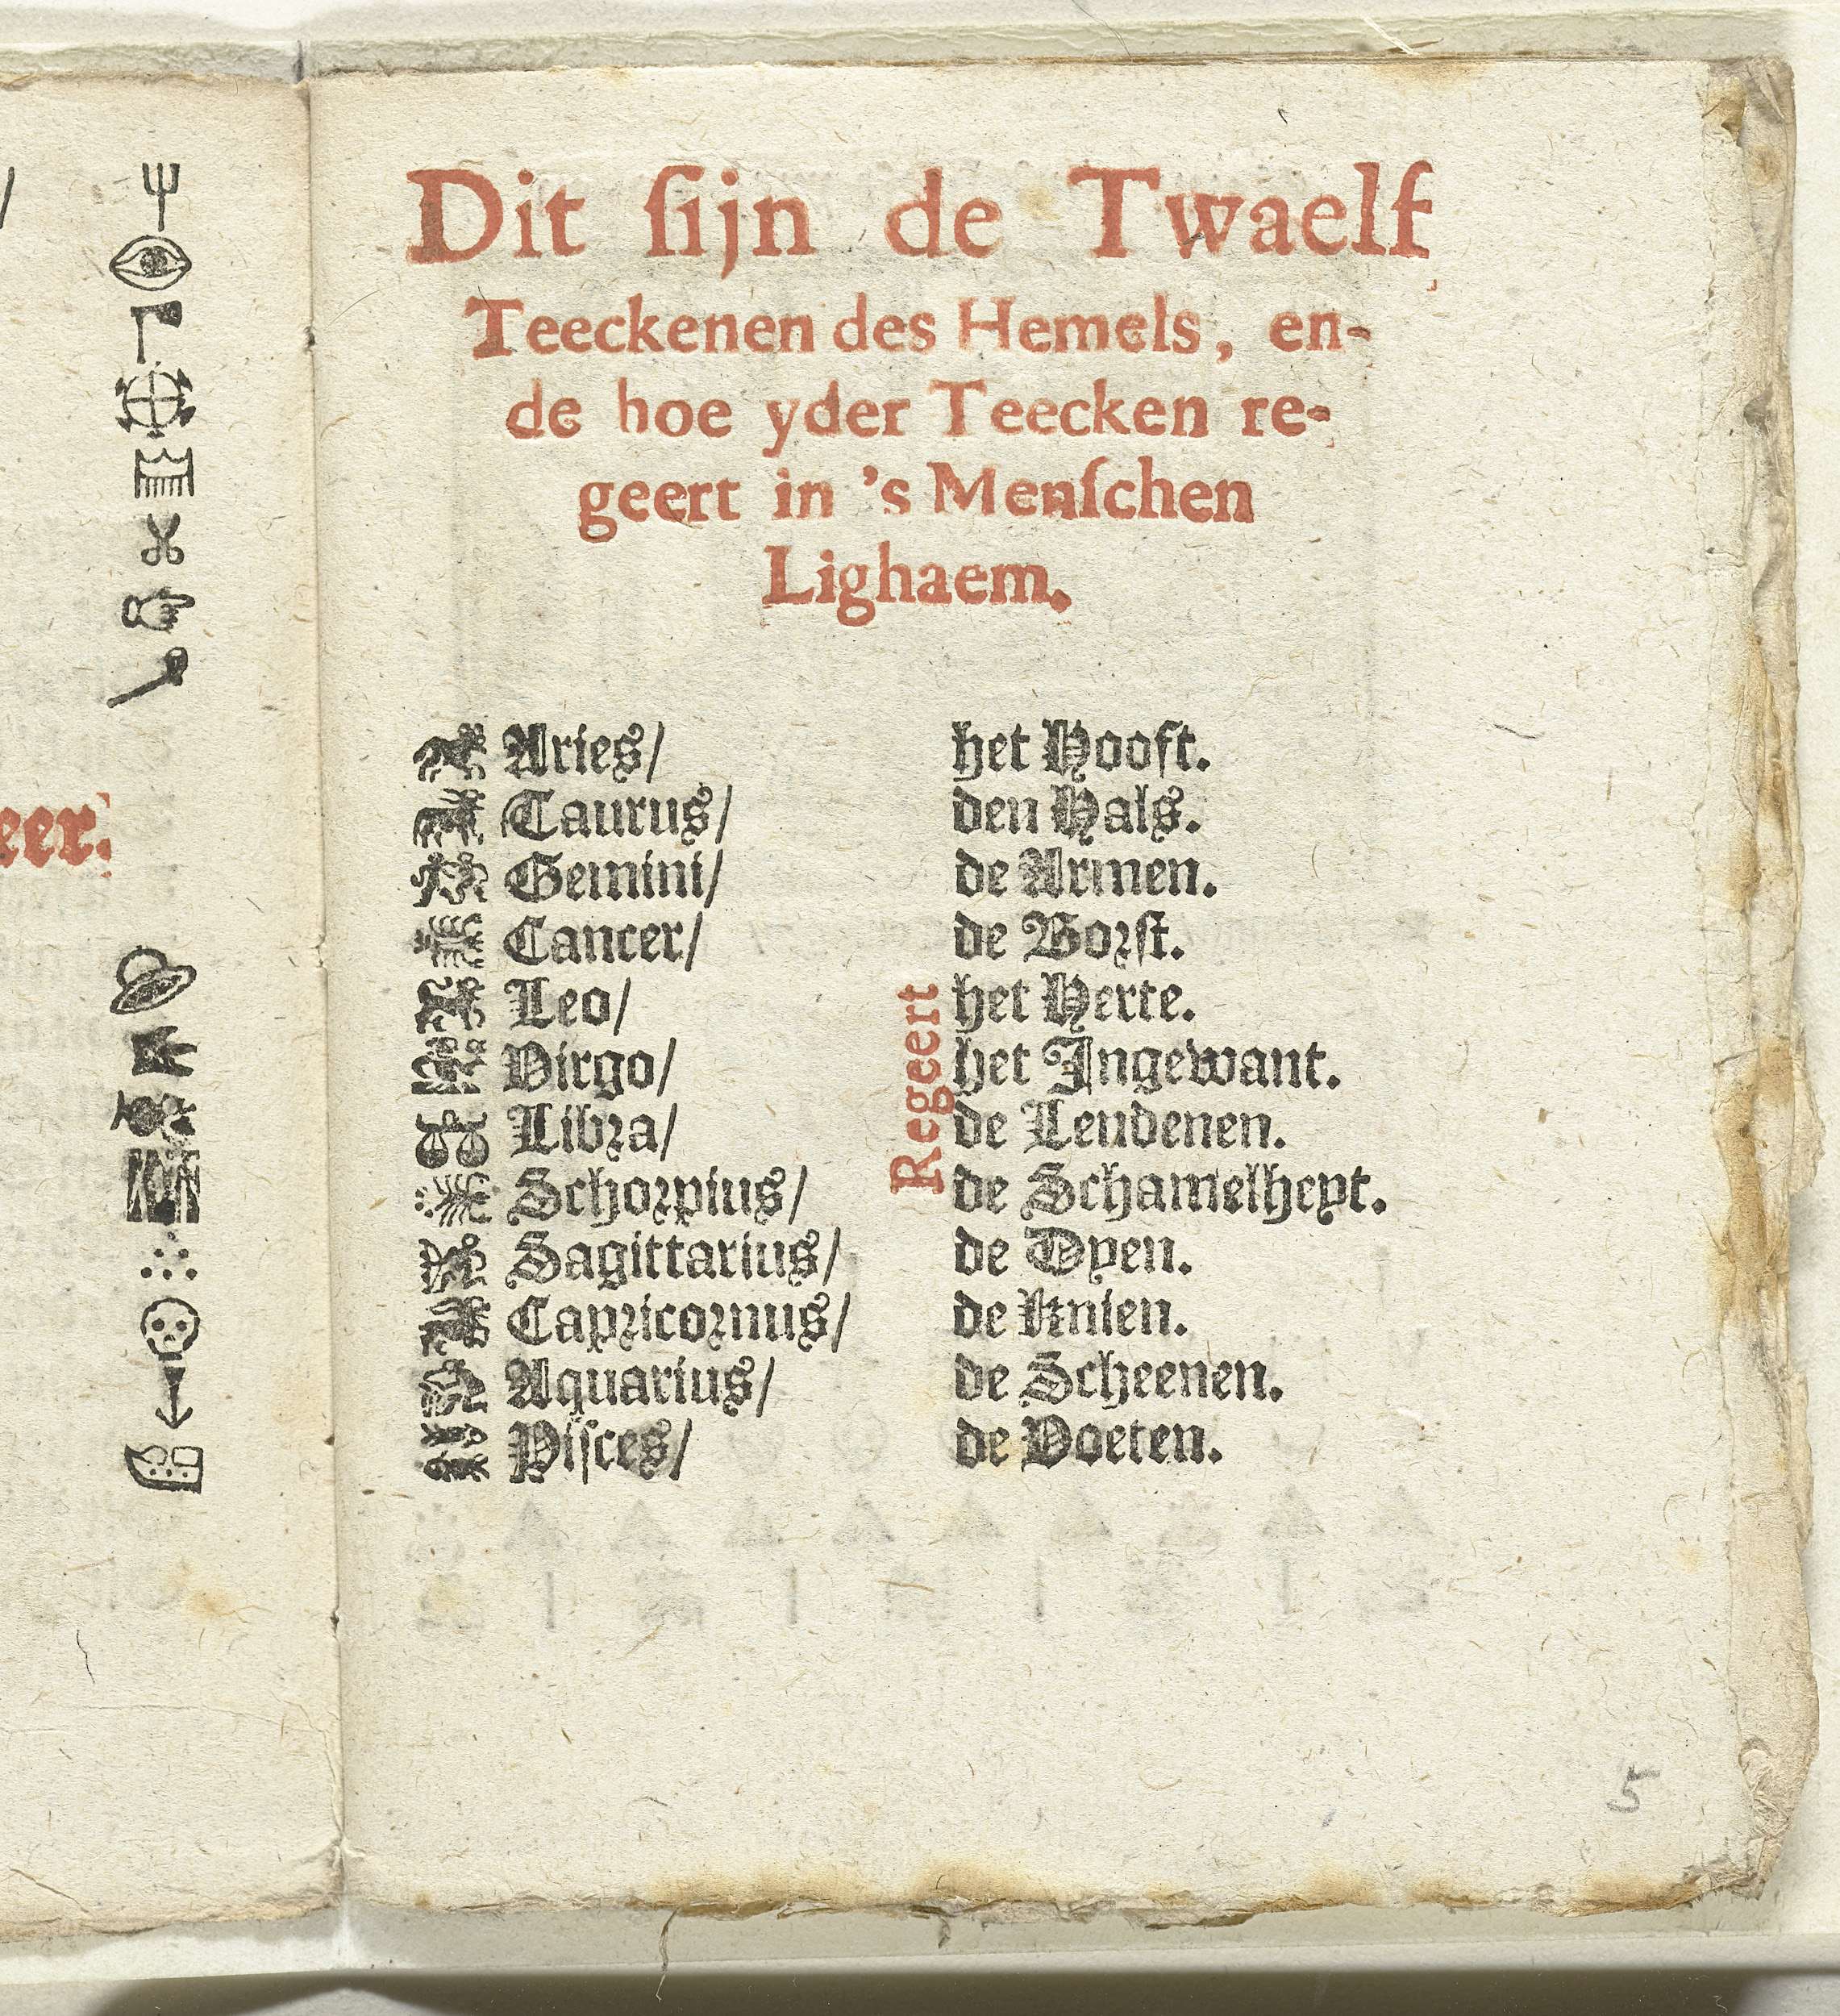 Dit ſijn de Twaelf
Teeckenen des Hemels, en-
de hoe yder Teecken re-
geert in 's Menſchen
Lighaem.
Aries/ het Hooft.
Taurus/ den Hals.
Gemini/ de Armen.
Cancer/ de Borſt.
Leo/ het Herte.
Virgo/ het Ingewant.
Libra/ de Lendenen.
Schorpius/ de Schamelheyt.
Sagittarius/ de Dyen.
Capricornus/ de Knien.
Aquarius/ de Scheenen.
Piſces/ de Voeten.
Regeert
5